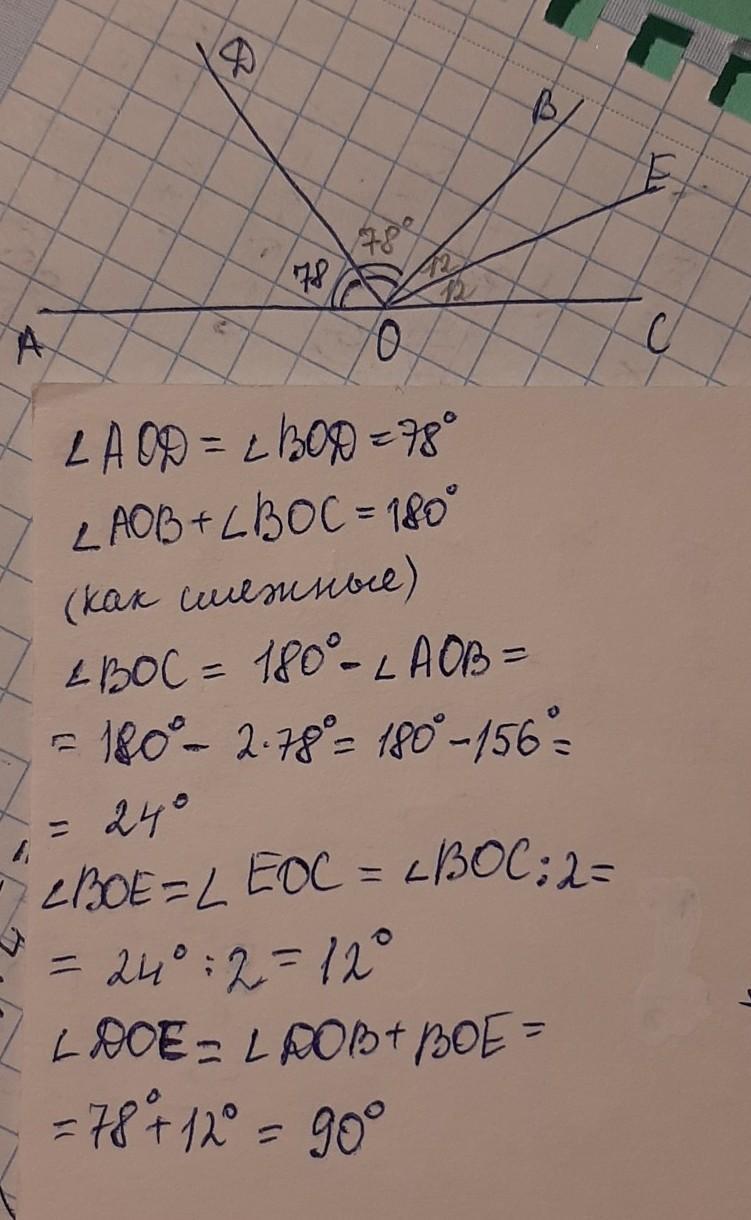 D
B
E
78°
78
12
12
A
O
C
∠AOD = ∠BOD = 78°
∠AOB + ∠BOC = 180°
(как смежные)
∠BOC = 180° - ∠AOB =
= 180° - 2·78° = 180° - 156° =
= 24°
∠BOE = ∠EOC = ∠BOC : 2 =
= 24° : 2 = 12°
∠DOE = ∠DOB + BOE =
= 78° + 12° = 90°